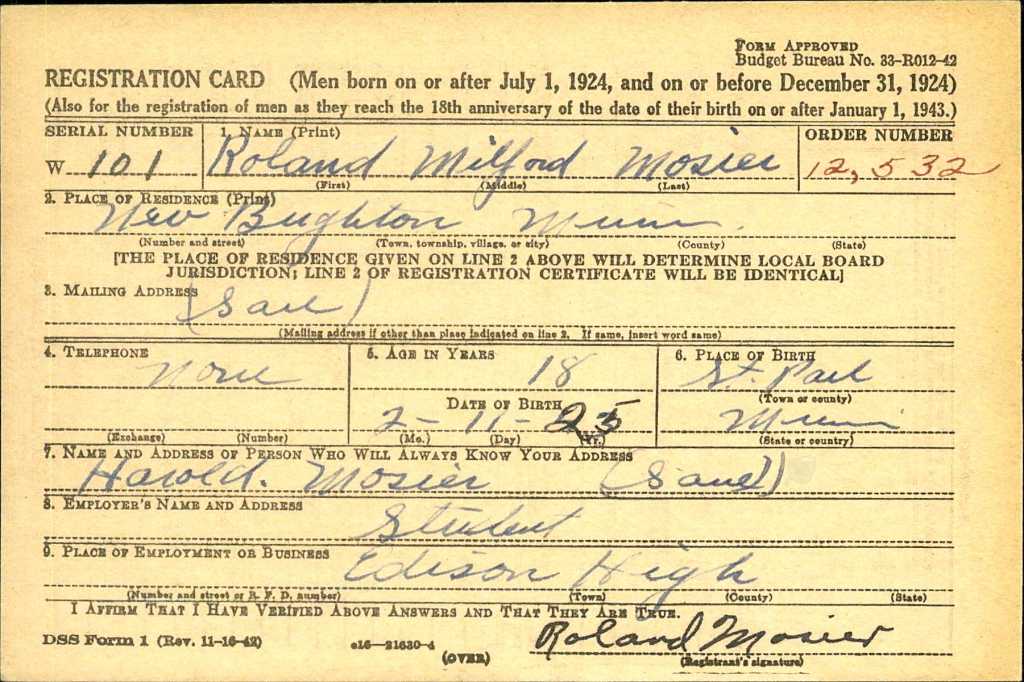 FORM APPROVED
Budget Bureau No. 33-R012-42
REGISTRATION CARD (Men born on or after July 1, 1924, and on or before December 31, 1924)
(Also for the registration of men as they reach the 18th anniversary of the date of their birth on or after January 1, 1943.)
SERIAL NUMBER 1. NAME (Print) ORDER NUMBER
W 101 Roland Milford Mosier 12,532
(First) (Middle) (Last)
2. PLACE OF RESIDENCE (Print)
New Brighton Minn.
(Number and street) (Town, township, village, or city) (County) (State)
[THE PLACE OF RESIDENCE GIVEN ON LINE 2 ABOVE WILL DETERMINE LOCAL BOARD
JURISDICTION; LINE 2 OF REGISTRATION CERTIFICATE WILL BE IDENTICAL]
3. MAILING ADDRESS
(Same)
(Mailing address if other than place indicated on line 2. If same, insert word same)
4. TELEPHONE 5. AGE IN YEARS 6. PLACE OF BIRTH
None 18 St. Paul
DATE OF BIRTH (Town or county)
2-11-25 Minn
(Exchange) (Number) (Mo.) (Day) (Yr.) (State or country)
7. NAME AND ADDRESS OF PERSON WHO WILL ALWAYS KNOW YOUR ADDRESS
Harold. Mosier (Same)
8. EMPLOYER'S NAME AND ADDRESS
Student
9. PLACE OF EMPLOYMENT OR BUSINESS
Edison High
(Number and street or R. F. D. number) (Town) (County) (State)
I AFFIRM THAT I HAVE VERIFIED ABOVE ANSWERS AND THAT THEY ARE TRUE.
DSS Form 1 (Rev. 11-16-42) c16—21630-4 (OVER) Roland Mosier
(Registrant's signature)